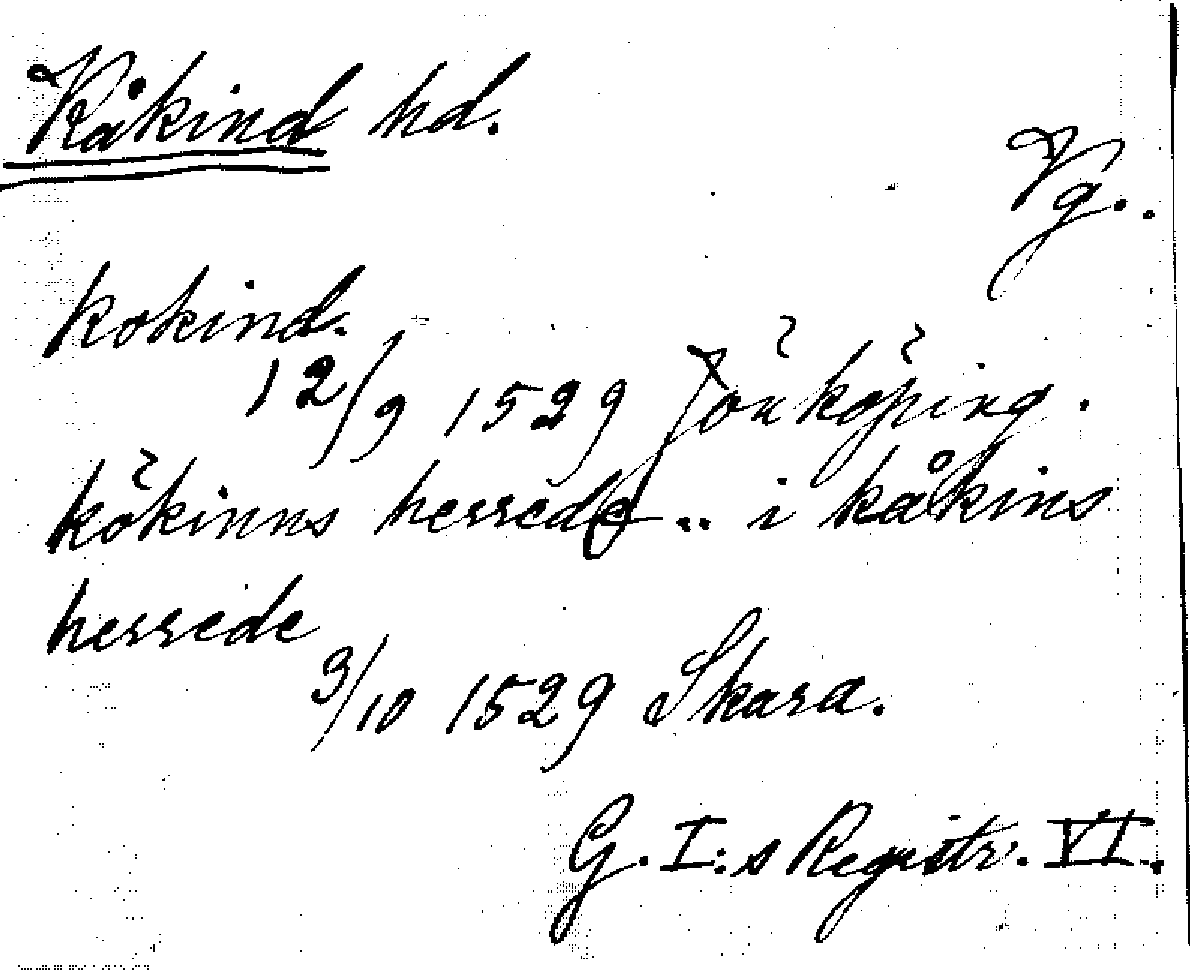 Kåkind hd.
Vg.
kokind.
12/9 1529 Jönköping.
kökinns herrede .. i kåkins
herrede
3/10 1529 Skara.
G. I:s Registr. VI.